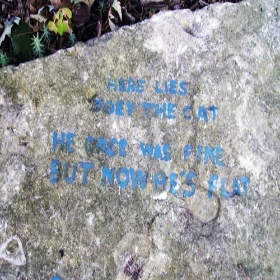 HERE LIES
JOEY THE CAT
HE ONCE WAS FINE
BUT NOW HE'S FLAT